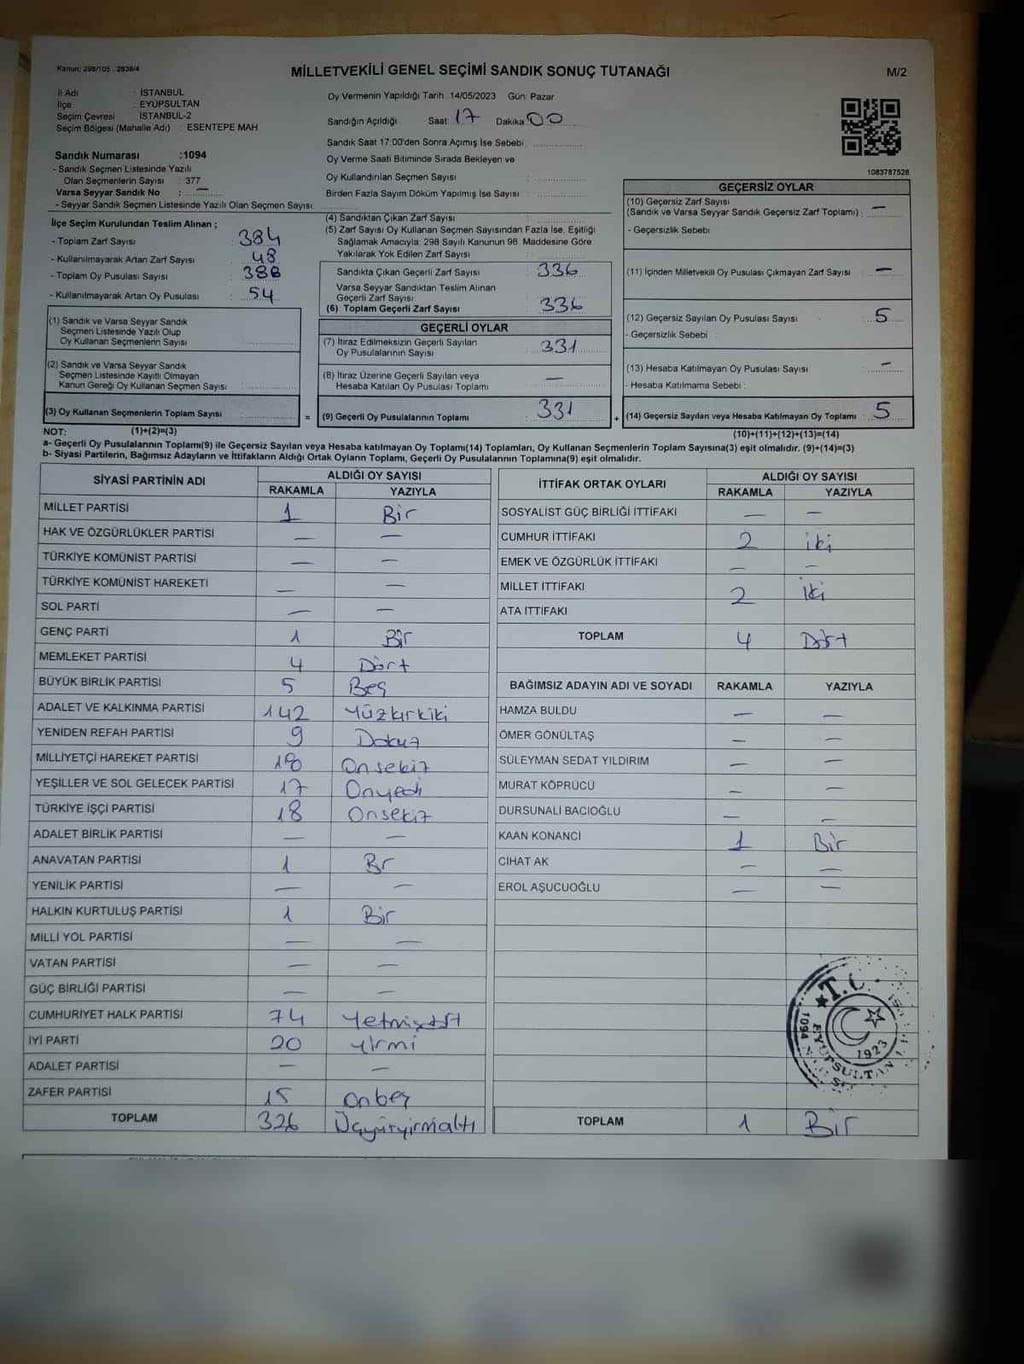 Kanun: 298/105 , 2839/4
MİLLETVEKİLİ GENEL SEÇİMİ SANDIK SONUÇ TUTANAĞI
M/2
İl Adı : İSTANBUL
İlçe : EYÜPSULTAN
Seçim Çevresi : İSTANBUL-2
Seçim Bölgesi (Mahalle Adı) : ESENTEPE MAH
Oy Vermenin Yapıldığı Tarih: 14/05/2023 Gün: Pazar
Sandığın Açıldığı Saat: 17 Dakika 00
Sandık Saat 17:00'den Sonra Açımış İse Sebebi
Oy Verme Saati Bitiminde Sırada Bekleyen ve
Oy Kullandırılan Seçmen Sayısı
Birden Fazla Sayım Döküm Yapılmış İse Sayısı
1083787528
Sandık Numarası :1094
- Sandık Seçmen Listesinde Yazılı
Olan Seçmenlerin Sayısı : 377
Varsa Seyyar Sandık No : —
- Seyyar Sandık Seçmen Listesinde Yazılı Olan Seçmen Sayısı
İlçe Seçim Kurulundan Teslim Alınan ;
- Toplam Zarf Sayısı : 384
- Kullanılmayarak Artan Zarf Sayısı : 48
- Toplam Oy Pusulası Sayısı : 388
- Kullanılmayarak Artan Oy Pusulası : 54
(1) Sandık ve Varsa Seyyar Sandık
Seçmen Listesinde Yazılı Olup
Oy Kullanan Seçmenlerin Sayısı
(2) Sandık ve Varsa Seyyar Sandık
Seçmen Listesinde Kayıtlı Olmayan
Kanun Gereği Oy Kullanan Seçmen Sayısı
(3) Oy Kullanan Seçmenlerin Toplam Sayısı =
(1)+(2)=(3)
(4) Sandıktan Çıkan Zarf Sayısı
(5) Zarf Sayısı Oy Kullanan Seçmen Sayısından Fazla İse, Eşitliği
Sağlamak Amacıyla; 298 Sayılı Kanunun 98. Maddesine Göre
Yakılarak Yok Edilen Zarf Sayısı
Sandıkta Çıkan Geçerli Zarf Sayısı : 336
Varsa Seyyar Sandıktan Teslim Alınan
Geçerli Zarf Sayısı:
(6) Toplam Geçerli Zarf Sayısı : 336
GEÇERLİ OYLAR
(7) İtiraz Edilmeksizin Geçerli Sayılan
Oy Pusulalarının Sayısı : 331
(8) İtiraz Üzerine Geçerli Sayılan veya
Hesaba Katılan Oy Pusulası Toplamı : —
(9) Geçerli Oy Pusulalarının Toplamı : 331 +
GEÇERSİZ OYLAR
(10) Geçersiz Zarf Sayısı
(Sandık ve Varsa Seyyar Sandık Geçersiz Zarf Toplamı) : —
- Geçersizlik Sebebi
(11) İçinden Milletvekili Oy Pusulası Çıkmayan Zarf Sayısı : —
(12) Geçersiz Sayılan Oy Pusulası Sayısı : 5
- Geçersizlik Sebebi
(13) Hesaba Katılmayan Oy Pusulası Sayısı : —
- Hesaba Katılmama Sebebi :
(14) Geçersiz Sayılan veya Hesaba Katılmayan Oy Toplamı : 5
(10)+(11)+(12)+(13)=(14)
NOT:
a- Geçerli Oy Pusulalarının Toplamı(9) ile Geçersiz Sayılan veya Hesaba katılmayan Oy Toplamı(14) Toplamları, Oy Kullanan Seçmenlerin Toplam Sayısına(3) eşit olmalıdır. (9)+(14)=(3)
b- Siyasi Partilerin, Bağımsız Adayların ve İttifakların Aldığı Ortak Oyların Toplamı, Geçerli Oy Pusulalarının Toplamına(9) eşit olmalıdır.
SİYASİ PARTİNİN ADI ALDIĞI OY SAYISI
RAKAMLA YAZIYLA
MİLLET PARTİSİ 1 Bir
HAK VE ÖZGÜRLÜKLER PARTİSİ — —
TÜRKİYE KOMÜNİST PARTİSİ — —
TÜRKİYE KOMÜNİST HAREKETİ — —
SOL PARTİ — —
GENÇ PARTİ 1 Bir
MEMLEKET PARTİSİ 4 Dört
BÜYÜK BİRLİK PARTİSİ 5 Beş
ADALET VE KALKINMA PARTİSİ 142 Yüzkırkiki
YENİDEN REFAH PARTİSİ 9 Dokuz
MİLLİYETÇİ HAREKET PARTİSİ 18 Onsekiz
YEŞİLLER VE SOL GELECEK PARTİSİ 17 Onyedi
TÜRKİYE İŞÇİ PARTİSİ 18 Onsekiz
ADALET BİRLİK PARTİSİ — —
ANAVATAN PARTİSİ 1 Br
YENİLİK PARTİSİ — —
HALKIN KURTULUŞ PARTİSİ 1 Bir
MİLLİ YOL PARTİSİ — —
VATAN PARTİSİ — —
GÜÇ BİRLİĞİ PARTİSİ — —
CUMHURİYET HALK PARTİSİ 74 Yetmişdört
İYİ PARTİ 20 Yirmi
ADALET PARTİSİ — —
ZAFER PARTİSİ 15 Onbeş
TOPLAM 326 Üçyüzyirmialtı
İTTİFAK ORTAK OYLARI ALDIĞI OY SAYISI
RAKAMLA YAZIYLA
SOSYALİST GÜÇ BİRLİĞİ İTTİFAKI — —
CUMHUR İTTİFAKI 2 iki
EMEK VE ÖZGÜRLÜK İTTİFAKI — —
MİLLET İTTİFAKI 2 iki
ATA İTTİFAKI
TOPLAM 4 Dört
BAĞIMSIZ ADAYIN ADI VE SOYADI RAKAMLA YAZIYLA
HAMZA BULDU — —
ÖMER GÖNÜLTAŞ — —
SÜLEYMAN SEDAT YILDIRIM — —
MURAT KÖPRÜCÜ — —
DURSUNALİ BACIOĞLU — —
KAAN KONANCI 1 Bir
CİHAT AK — —
EROL AŞUCUOĞLU — —
TOPLAM 1 Bir
T.C.
EYÜPSULTAN
1094
1923